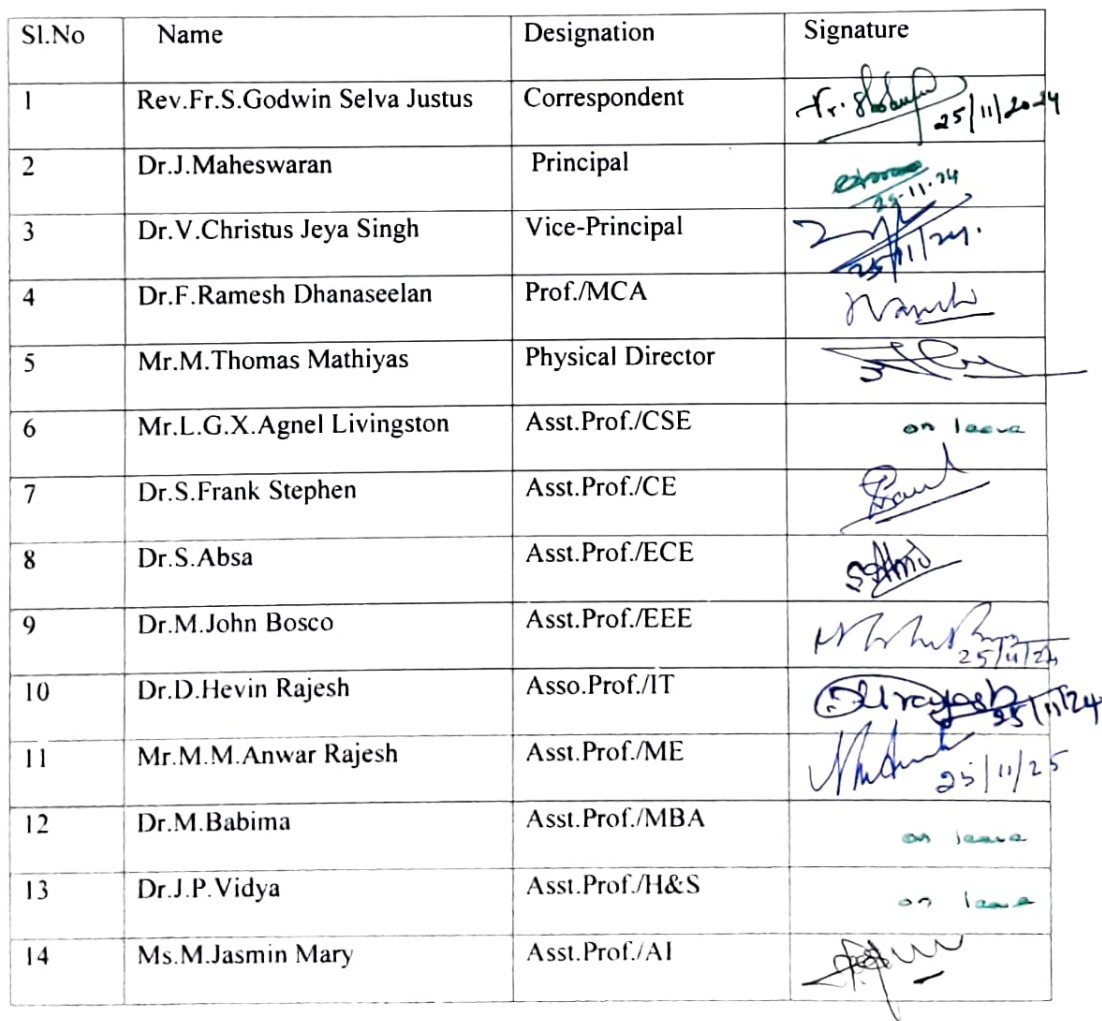 Sl.No Name Designation Signature
1 Rev.Fr.S.Godwin Selva Justus Correspondent Fr. 25/11/2024
2 Dr.J.Maheswaran Principal 25.11.24
3 Dr.V.Christus Jeya Singh Vice-Principal 25/11/24.
4 Dr.F.Ramesh Dhanaseelan Prof./MCA
5 Mr.M.Thomas Mathiyas Physical Director
6 Mr.L.G.X.Agnel Livingston Asst.Prof./CSE on leave
7 Dr.S.Frank Stephen Asst.Prof./CE
8 Dr.S.Absa Asst.Prof./ECE
9 Dr.M.John Bosco Asst.Prof./EEE 25/11/24
10 Dr.D.Hevin Rajesh Asso.Prof./IT 25/11/24
11 Mr.M.M.Anwar Rajesh Asst.Prof./ME 25/11/25
12 Dr.M.Babima Asst.Prof./MBA on leave
13 Dr.J.P.Vidya Asst.Prof./H&S on leave
14 Ms.M.Jasmin Mary Asst.Prof./AI